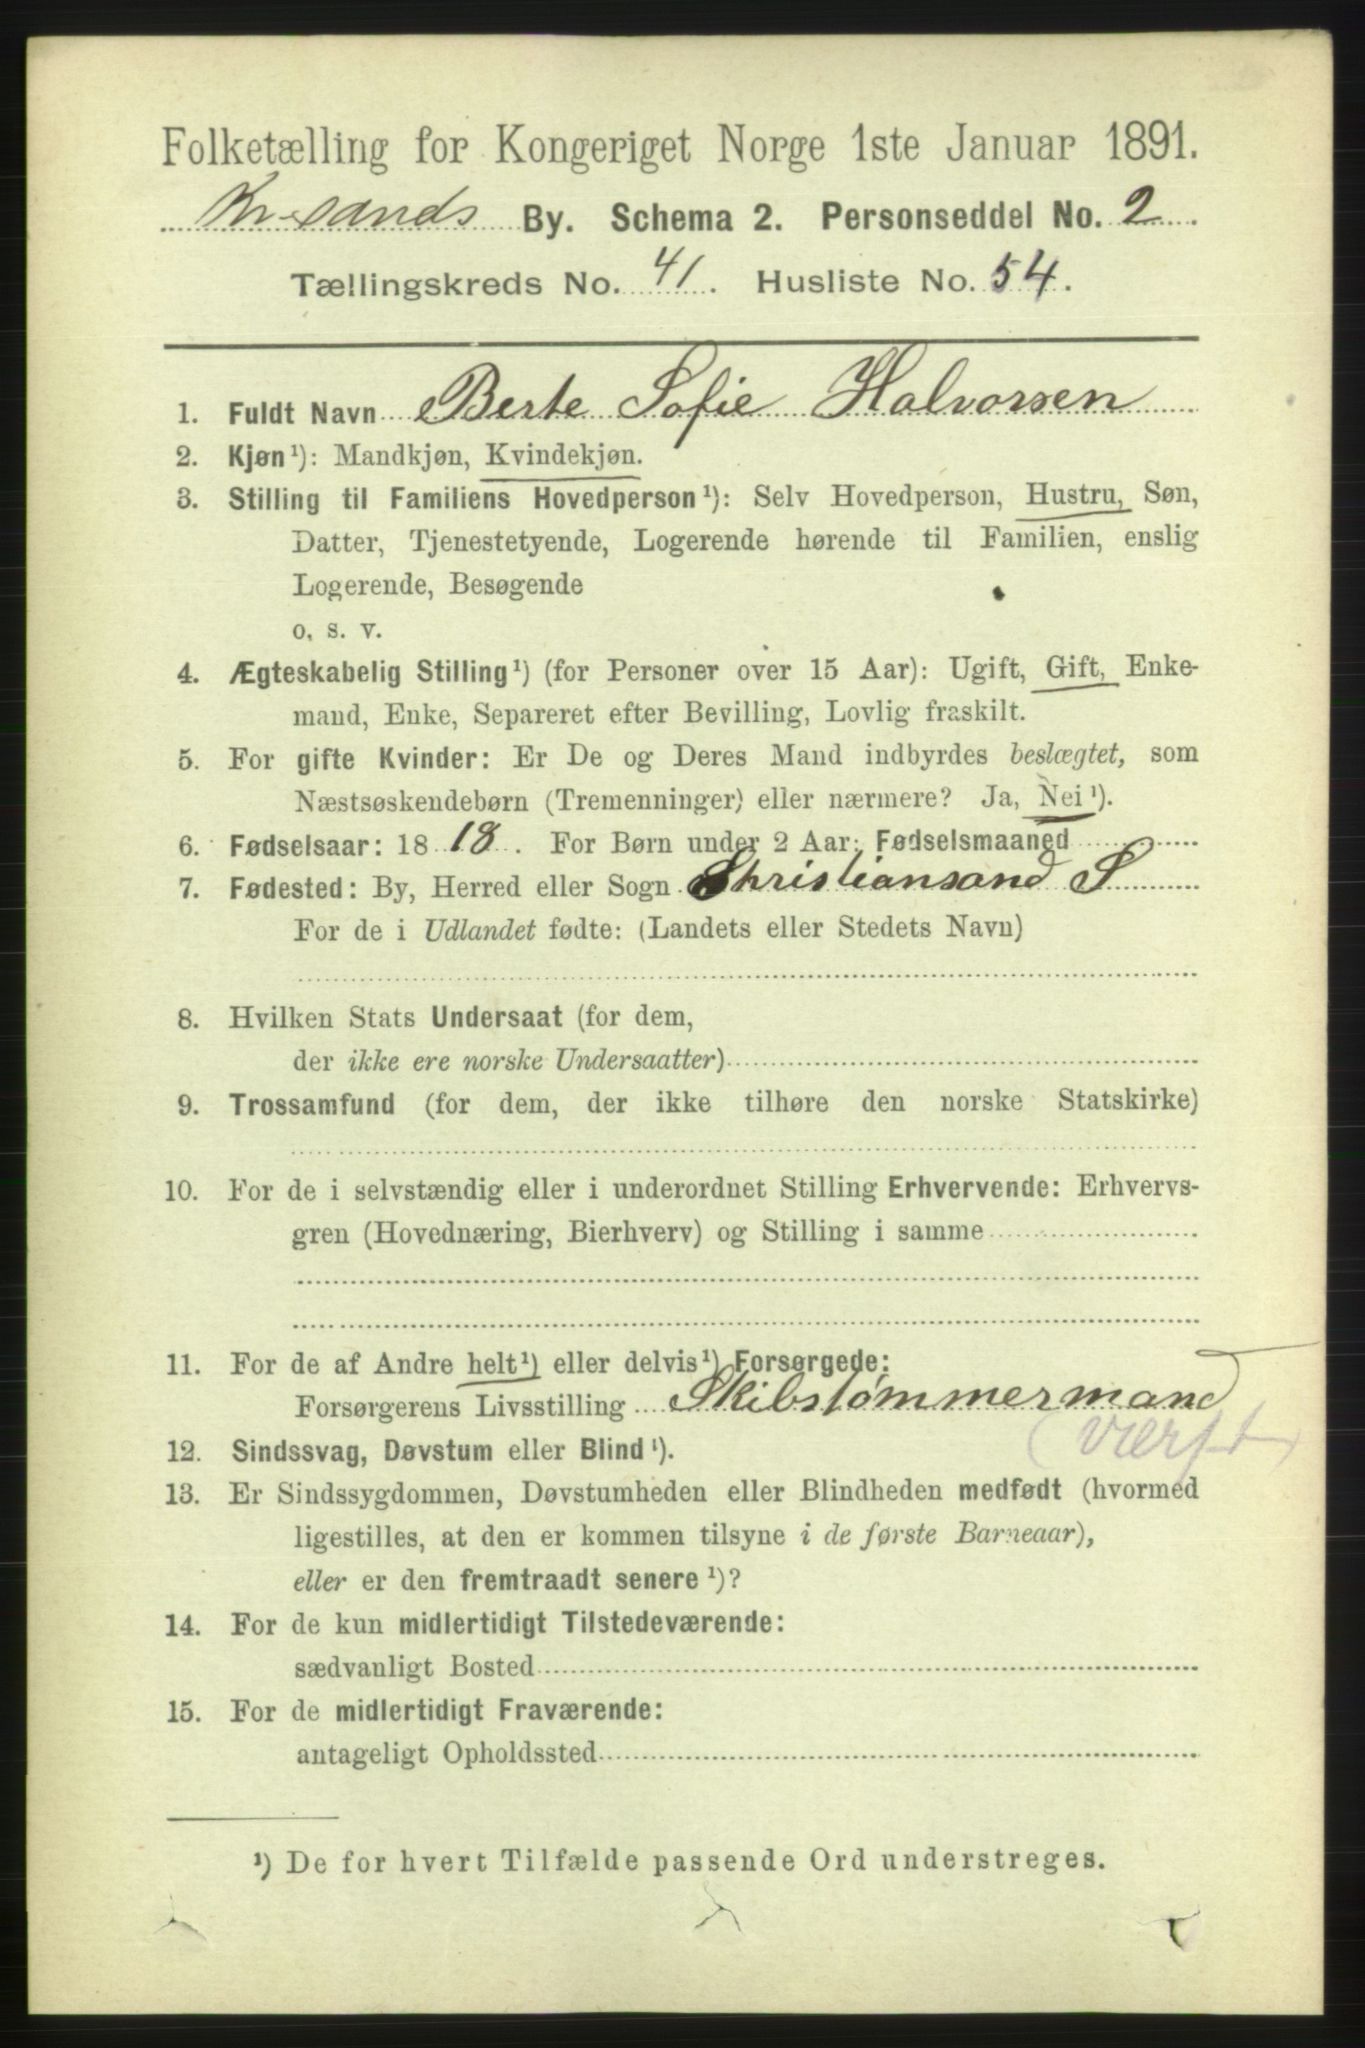 Folketælling for Kongeriget Norge 1ste Januar 1891.
Kr-sands By. Schema 2. Personseddel No. 2
Tællingskreds No. 41. Husliste No. 54.
1. Fuldt Navn Berte Sofie Halvorsen
2. Kjøn¹): Mandkjøn, Kvindekjøn.
3. Stilling til Familiens Hovedperson¹): Selv Hovedperson, Hustru, Søn,
Datter, Tjenestetyende, Logerende hørende til Familien, enslig
Logerende, Besøgende
o. s. v.
4. Ægteskabelig Stilling¹) (for Personer over 15 Aar): Ugift, Gift, Enke-
mand, Enke, Separeret efter Bevilling, Lovlig fraskilt.
5. For gifte Kvinder: Er De og Deres Mand indbyrdes beslægtet, som
Næstsøskendebørn (Tremenninger) eller nærmere? Ja, Nei¹).
6. Fødselsaar: 1818. For Børn under 2 Aar: Fødselsmaaned
7. Fødested: By, Herred eller Sogn Christiansand S
For de i Udlandet fødte: (Landets eller Stedets Navn)
8. Hvilken Stats Undersaat (for dem,
der ikke ere norske Undersaatter)
9. Trossamfund (for dem, der ikke tilhøre den norske Statskirke)
10. For de i selvstændig eller i underordnet Stilling Erhvervende: Erhvervs-
gren (Hovednæring, Bierhverv) og Stilling i samme
11. For de af Andre helt¹) eller delvis¹) Forsørgede:
Forsørgerens Livsstilling Skibstømmermand
(værft)
12. Sindssvag, Døvstum eller Blind¹).
13. Er Sindssygdommen, Døvstumheden eller Blindheden medfødt (hvormed
ligestilles, at den er kommen tilsyne i de første Barneaar),
eller er den fremtraadt senere¹)?
14. For de kun midlertidigt Tilstedeværende:
sædvanligt Bosted
15. For de midlertidigt Fraværende:
antageligt Opholdssted
¹) De for hvert Tilfælde passende Ord understreges.